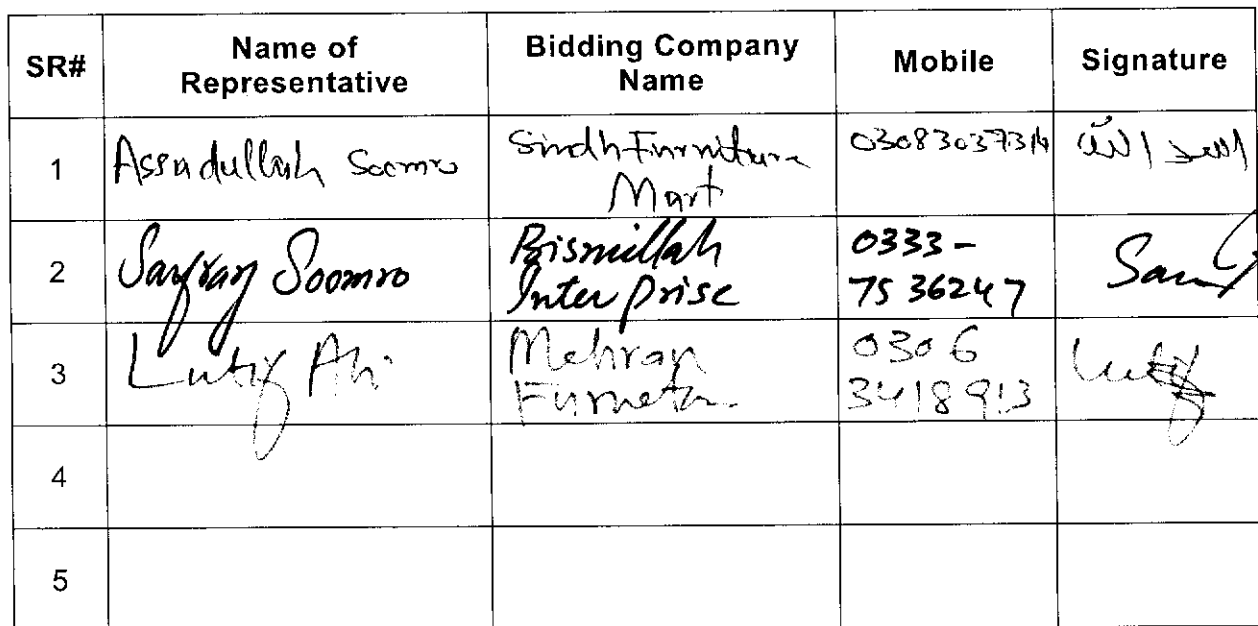 SR# Name of Representative Bidding Company Name Mobile Signature
1 Assadullah Soomro Sindh Furniture Mart 03083037314 اسد الله
2 Sarfraz Soomro Bismillah Inter prise 0333-7536247
3 Lutif Ali Mehran Furneture 0306 3418913 Lutif
4
5